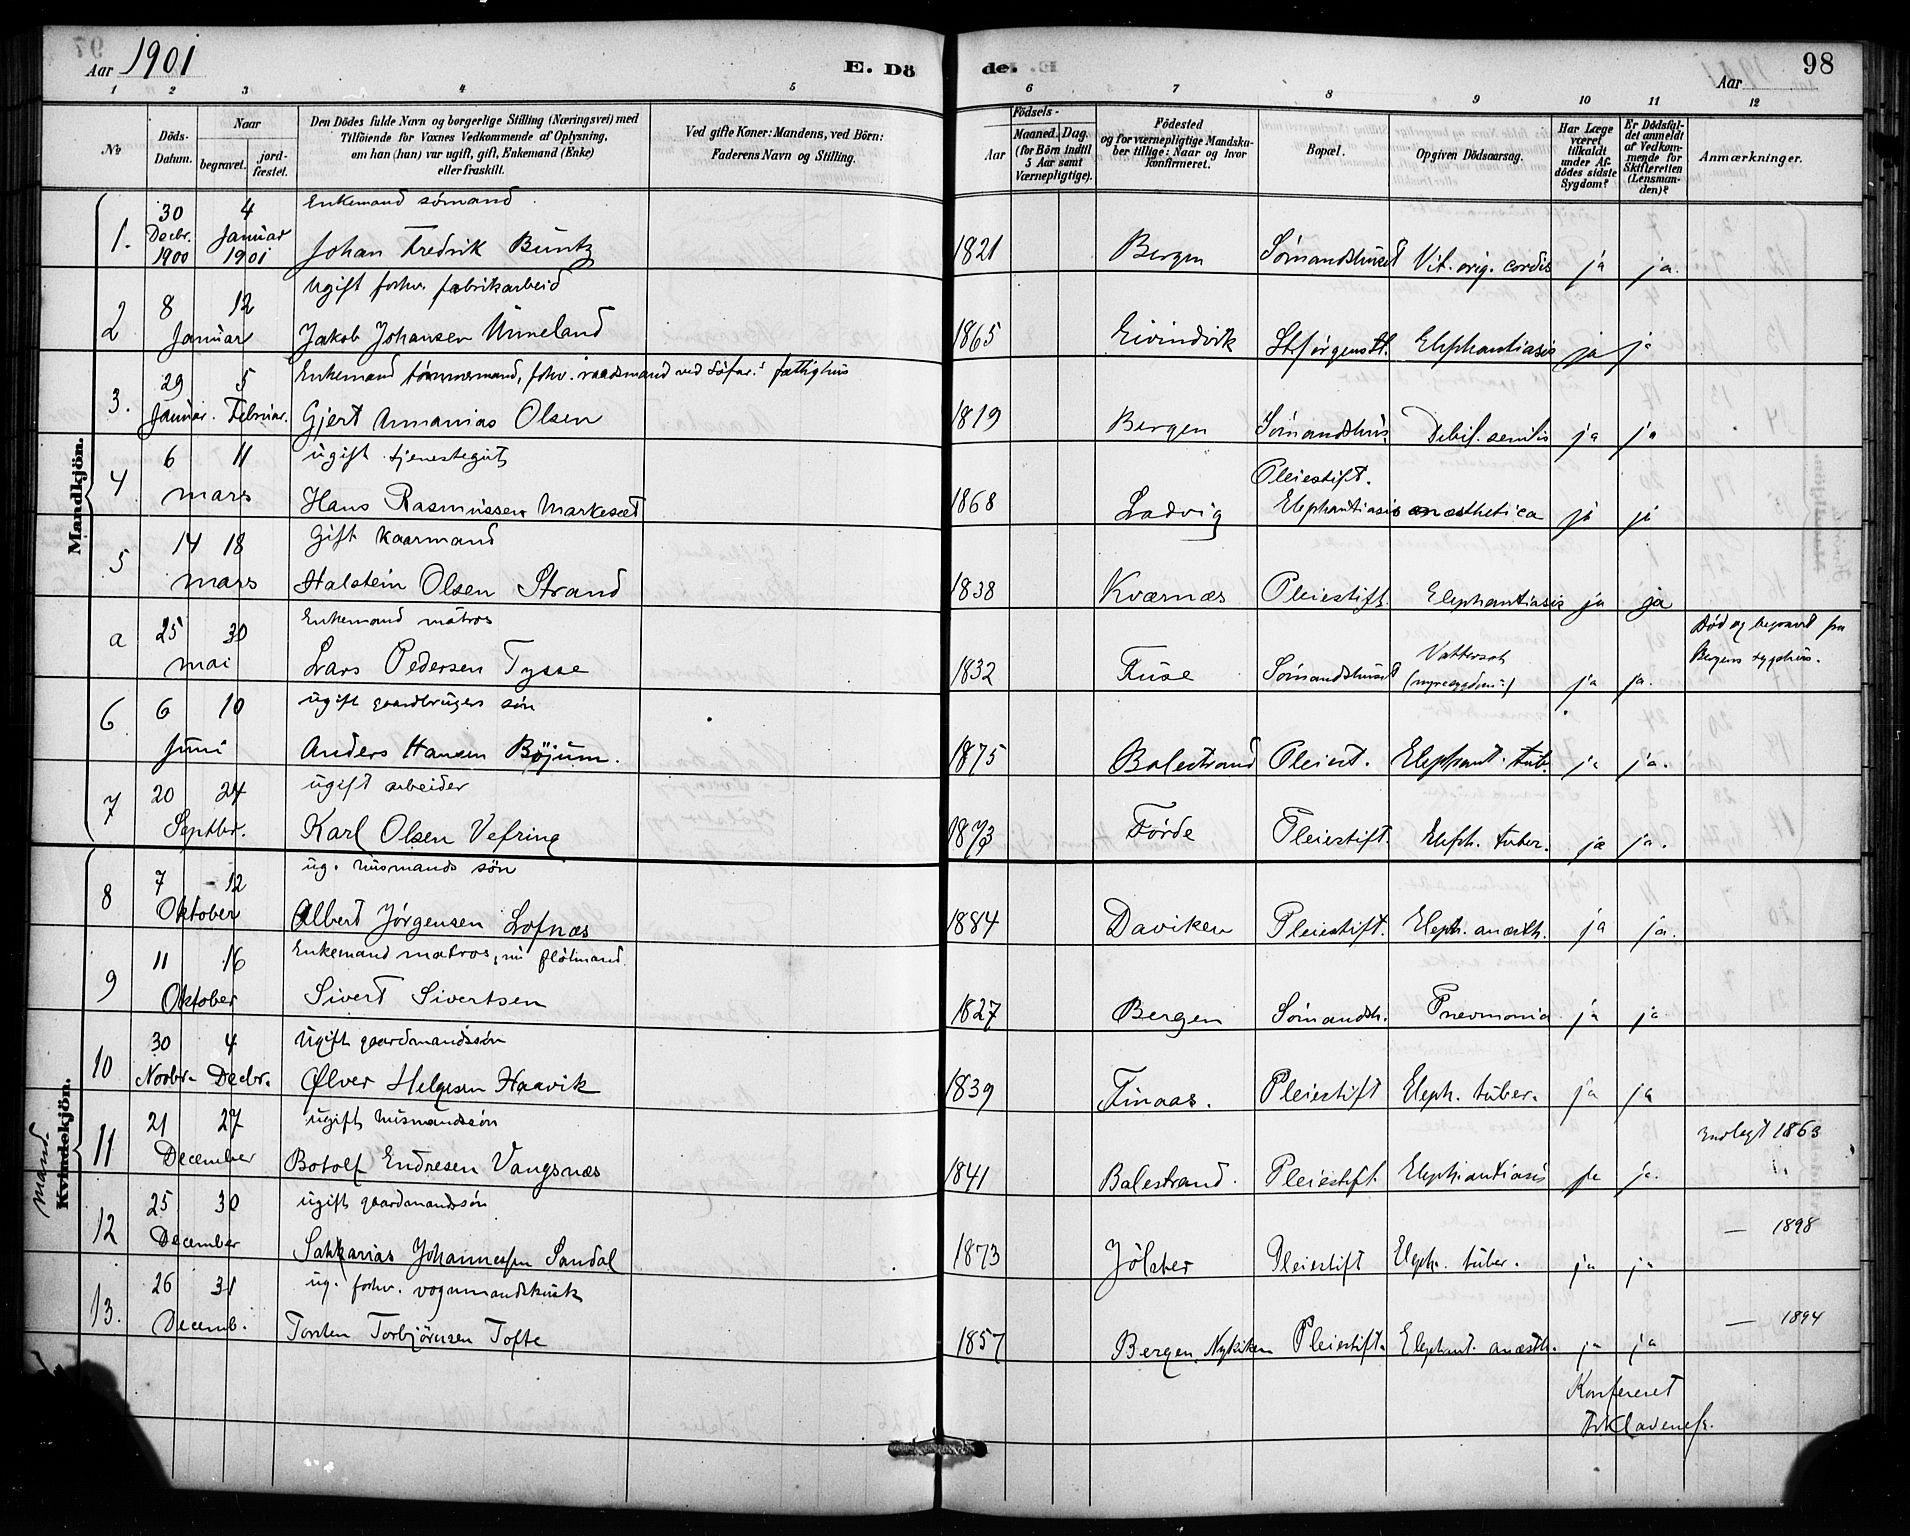 Aar 1901
E. Dö
de.
98
Aar
1 2 3 4 5 6 7 8 9 10 11 12
No
Döds-Datum.
Naar
begravet.
jord-fæstet.
Den Dödes fulde Navn og borgerlige Stilling (Næringsvei) med
Tilföiende for Voxnes Vedkommende af Oplysning,
om han (hun) var ugift, gift, Enkemand (Enke)
eller fraskilt.
Ved gifte Koner: Mandens, ved Börn:
Faderens Navn og Stilling.
Födsels-
Aar
Maaned. Dag.
(for Börn indtil
5 Aar samt
Værnepligtige).
Födested
og for værnepligtige Mandska-
ber tillige: Naar og hvor
konfirmeret.
Bopæl.
Opgiven Dödsaarsag.
Har Læge
været
tilkaldt
under Af-
dödes sidste
Sygdom?
Er Dödsfal-
det anmeldt
af Vedkom-
mende for
Skifteretten
(Lensman-
den)?
Anmærkninger.
Mandkjön.
Enkemand sømand
1. 30 Decbr. 1900 4 Januar 1901 Johan Fredrik Buntz 1821 Bergen Sømandshuset Vit. org. cordis ja ja.
Ugift forhv. fabrikarbeid
2 8 12 Januar Jakob Johansen Unneland 1865 Eivindvik St. Jørgens H. Elephantiasis ja ja
Enkemand tømmermand, fohv. raadsmand ved Søfar. fattighus
3. 29 Januar. 5 Februar. Gjert Annanias Olsen 1819 Bergen Sømandshus Debil. senilis ja ja
ugift tjenestegut
4 6 11 mars Hans Rasmussen Markeset 1868 Ladvig Pleiestift. Elephantiasis anæsthetica ja ja
Gift kaarmand
5 14 18 mars Halstein Olsen Strand 1838 Kværnæs Pleiestift. Elephantiasis ja ja
Enkemand matros
a 25 30 mai Lars Pedersen Tysse 1832 Fuse Sømandshuset Vattersot (nyresygdom) ja ja. Død og begravet fra Bergens sygehus.
ugift gaardbrugers søn
6 6 10 Juni Anders Hansen Böjum. 1875 Balestrand Pleiest. Elephant. tub. ja ja.
ugift arbeider
7 20 24 Septbr. Karl Olsen Vefring 1873 Førde Pleiestift. Eleph. tuber. ja ja.
ug. husmands søn
8 7 - 12 Oktober Albert Jørgensen Lofnæs 1884 Daviken Pleiestift. Eleph. anæsth. ja ja.
Enkemand matros, nu fløtmand.
9 11 16 Oktober Sivert Sivertsen 1827 Bergen Sømandsh. Pnevmonia ja ja
Ugift gaardmandssøn
10 30 Novbr. 4 Decbr. Ølver Helgesen Haavik 1839 Finaas. Pleiestift Eleph. tuber. ja ja
Mand.
Kvindekjön.
ugift husmandssøn
11 21 27 December Botolf Endresen Vangsnæs 1841 Balestrand. Pleiestift. Elephantiasis ja ja. indlagt 1863
ugift gaardmandssøn
12 25 30 December Sakkarias Johannessen Sandal 1873 Jölster Pleiestift Eleph. tuber. ja ja — 1898
ug. forhv. vognmandskusk
13. 26 31 Decemb. Torsten Torbjørnsen Tofte 1857 Bergen, Nykirken Pleiestift. Elephant. anæsth. ja ja — 1894
Konfereret